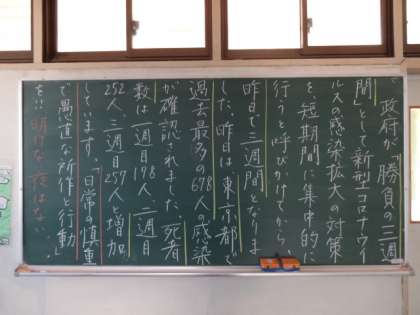 政府が「勝負の三週
間」として新型コロナウイ
ルスの感染拡大の対策
を、短期間に集中的に
行うと呼びかけてから、
昨日で三週間となりま
した。昨日は東京都で
過去最多の678人の感染
が確認されました。死者
数は一週目198人、二週目
252人、三週目257人と増加
しています。「日常の慎重
で愚直な所作と行動」
を!!明けない夜はない。